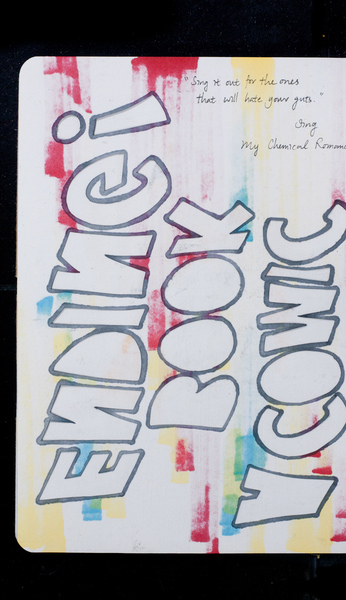 "Sing it out for the ones
that will hate your guts."
Sing
My Chemical Romanc
ENDING!
BOOK
YCOMIC